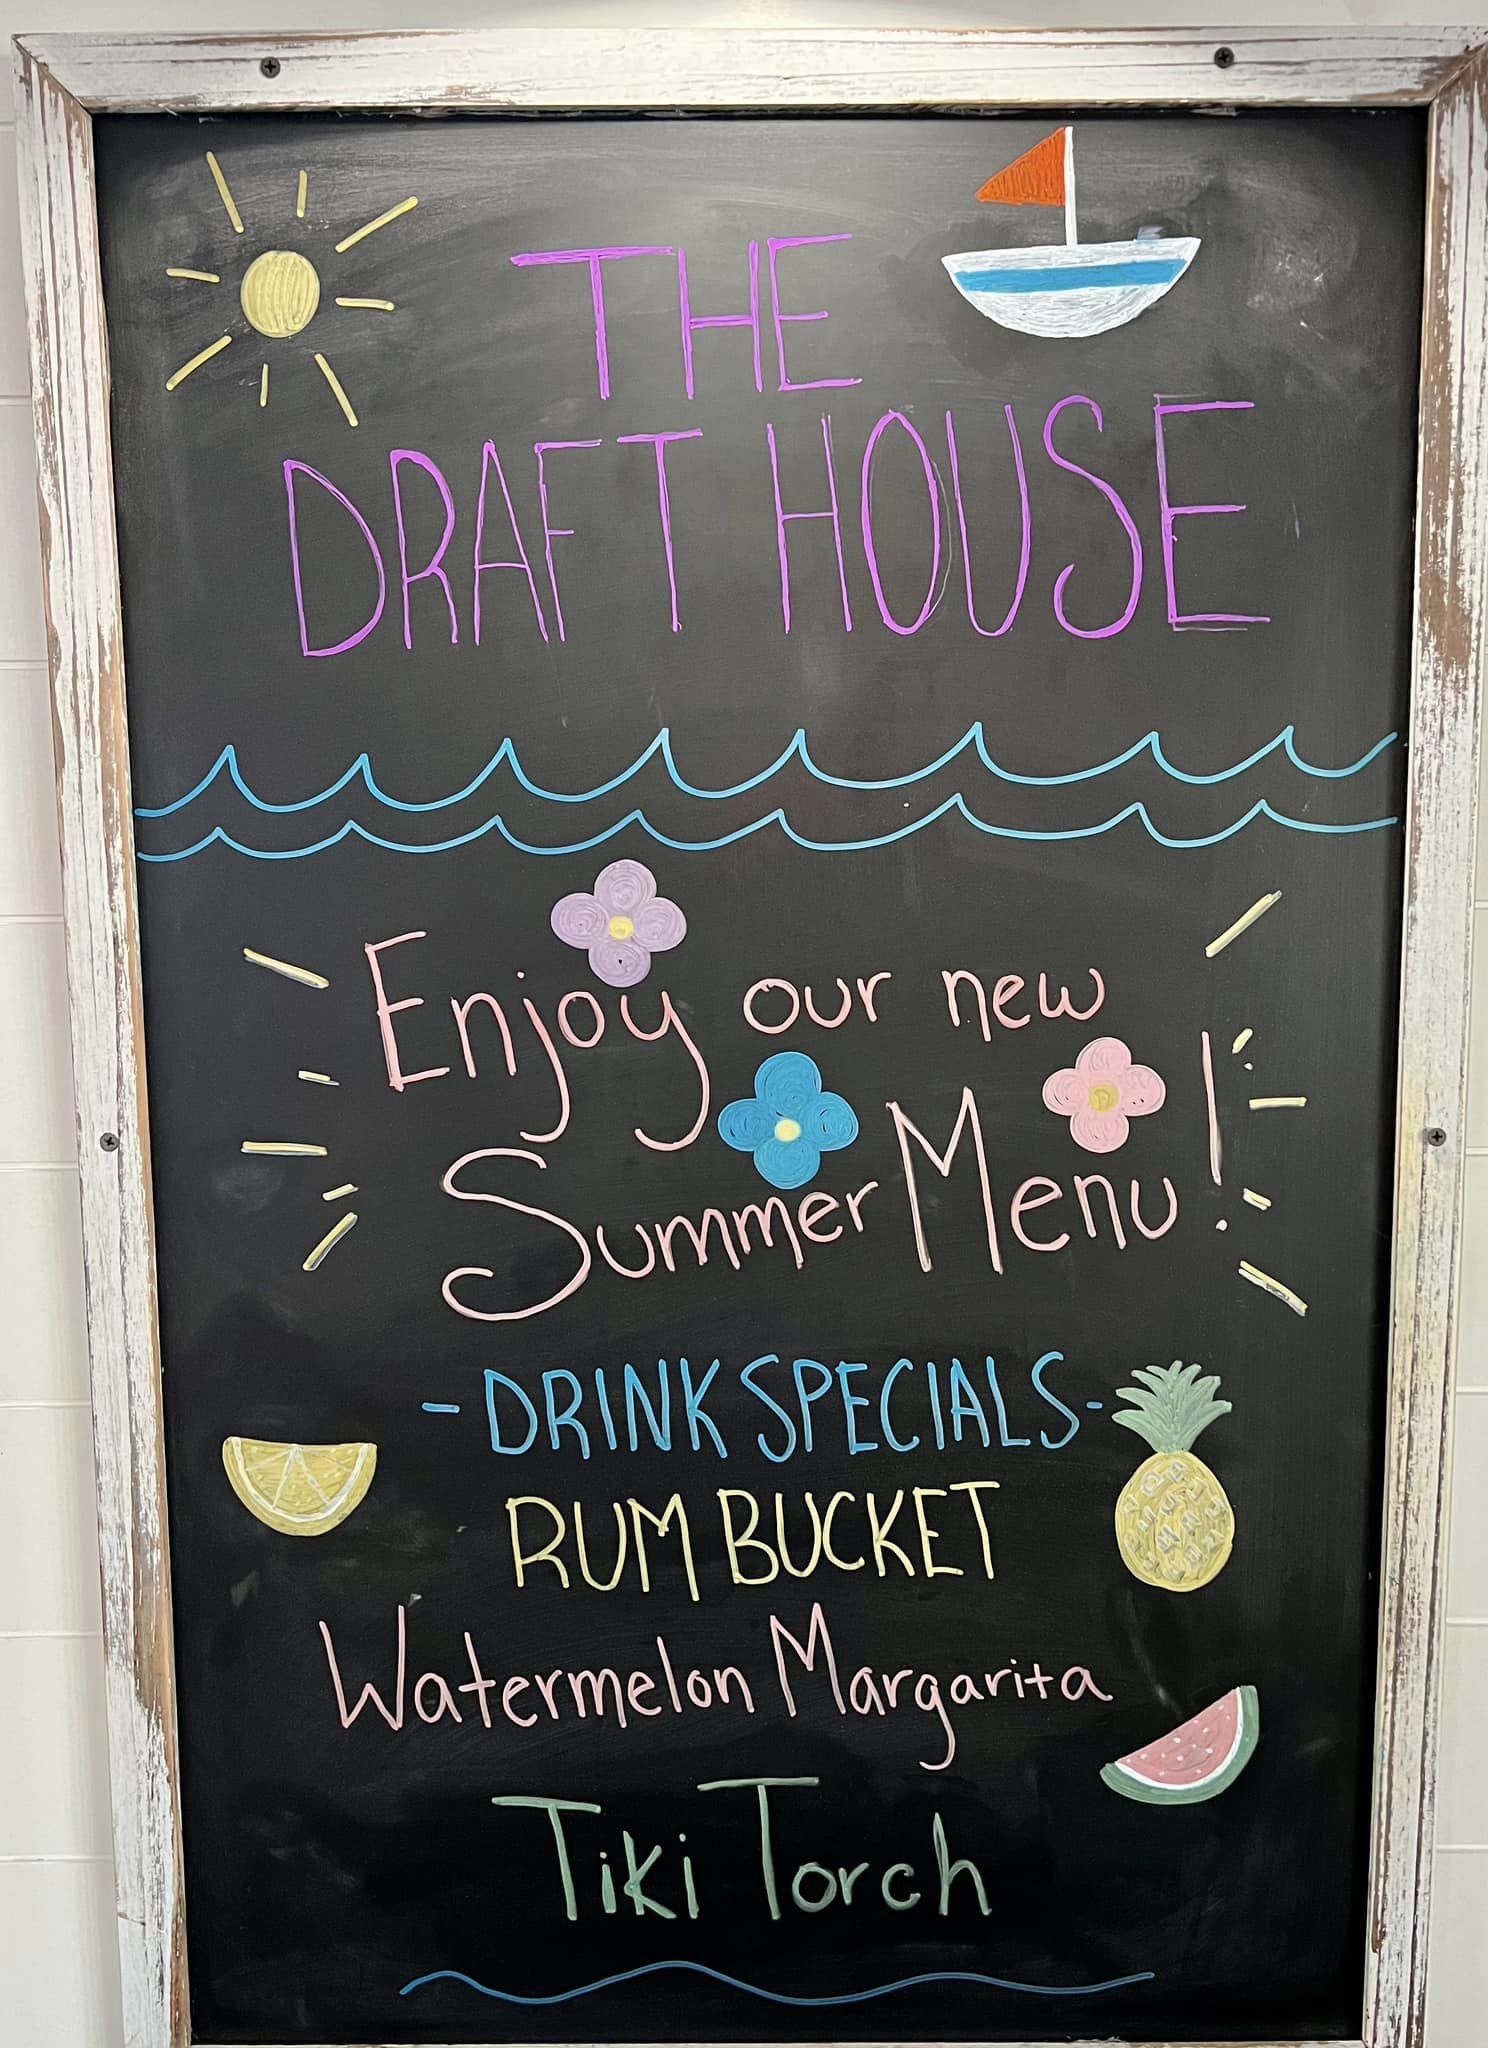 THE
DRAFT HOUSE
Enjoy our new
Summer Menu!
-DRINK SPECIALS-
RUM BUCKET
Watermelon Margarita
Tiki Torch